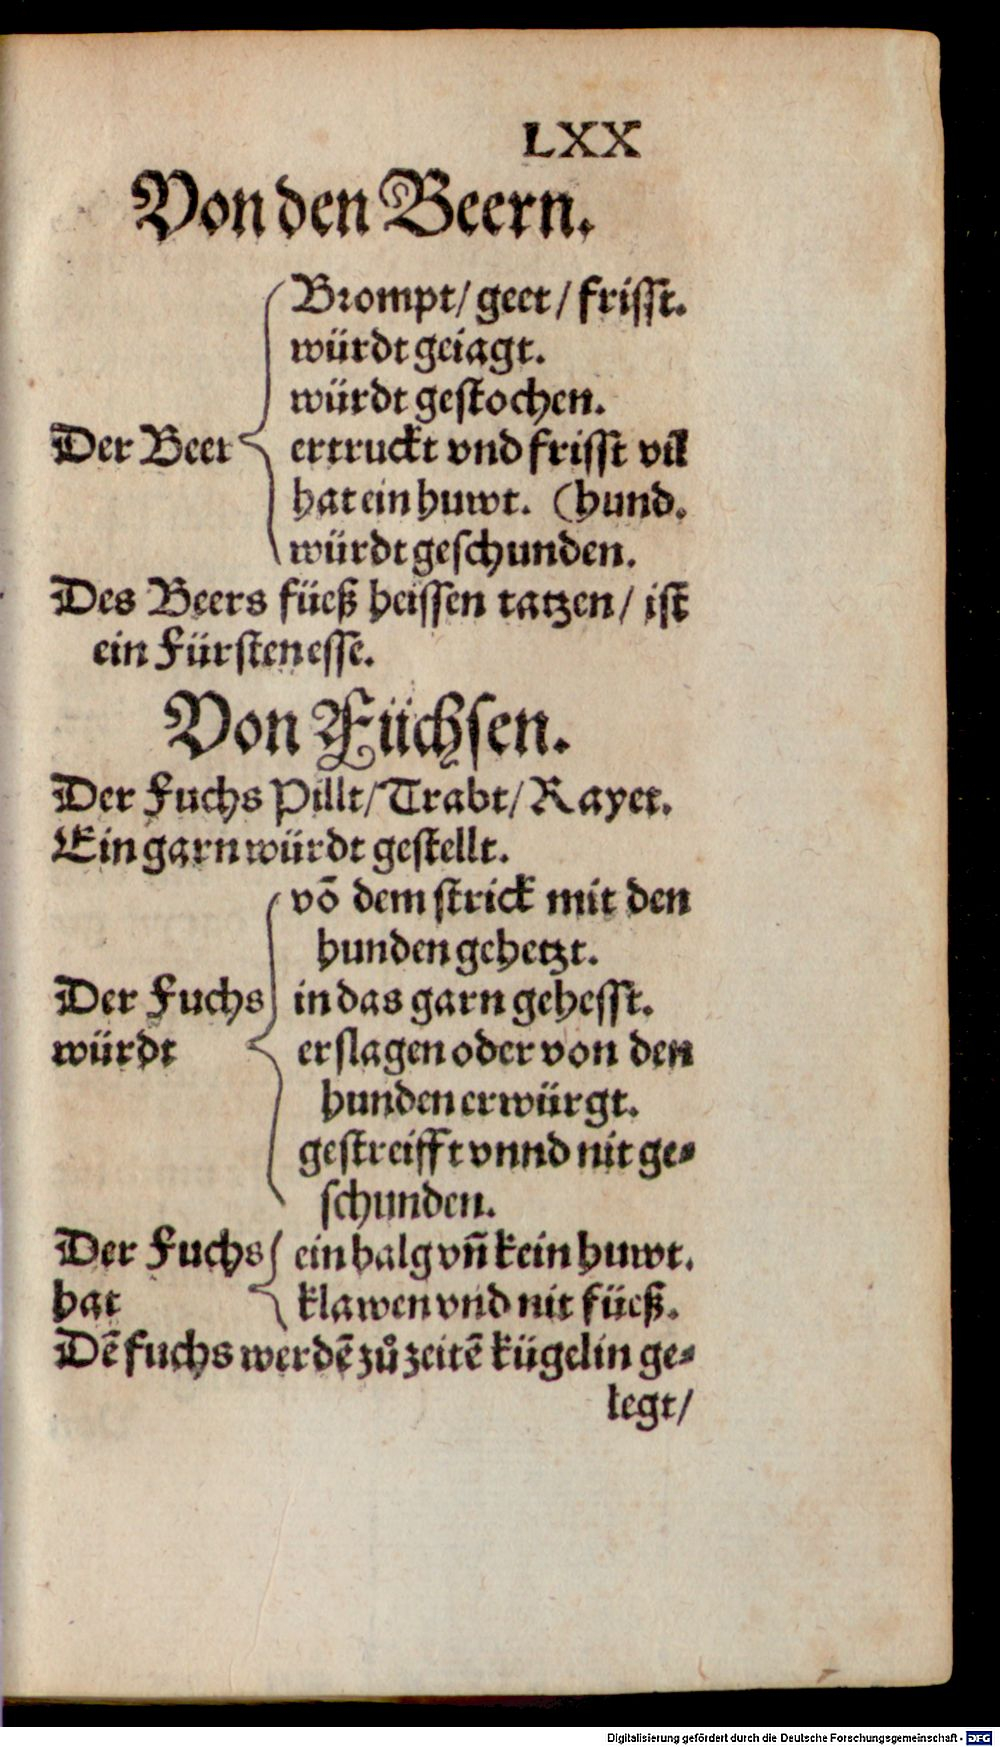 LXX
Von den Beern.
Brompt/ geet/ frisst.
würdt geiagt.
würdt gestochen.
Der Beer ertruckt vnd frisst vil
hat ein huwt. (hund.
würdt geschunden.
Des Beers füeß heissen tatzen/ ist
ein Fürstenesse.
Von Füchsen.
Der Fuchs Pillt/ Trabt/ Rayet.
Ein garn würdt gestellt.
vō dem strick mit den
hunden gehetzt.
Der Fuchs in das garn gehesst.
würdt erslagen oder von den
hunden erwürgt.
gestreifft vnnd nit ge-
schunden.
Der Fuchs ein balg vñ kein huwt.
hat klawen vnd nit füeß.
Dē fuchs werdē zů zeitē kügelin ge-
legt/
Digitalisierung gefördert durch die Deutsche Forschungsgemeinschaft - DFG